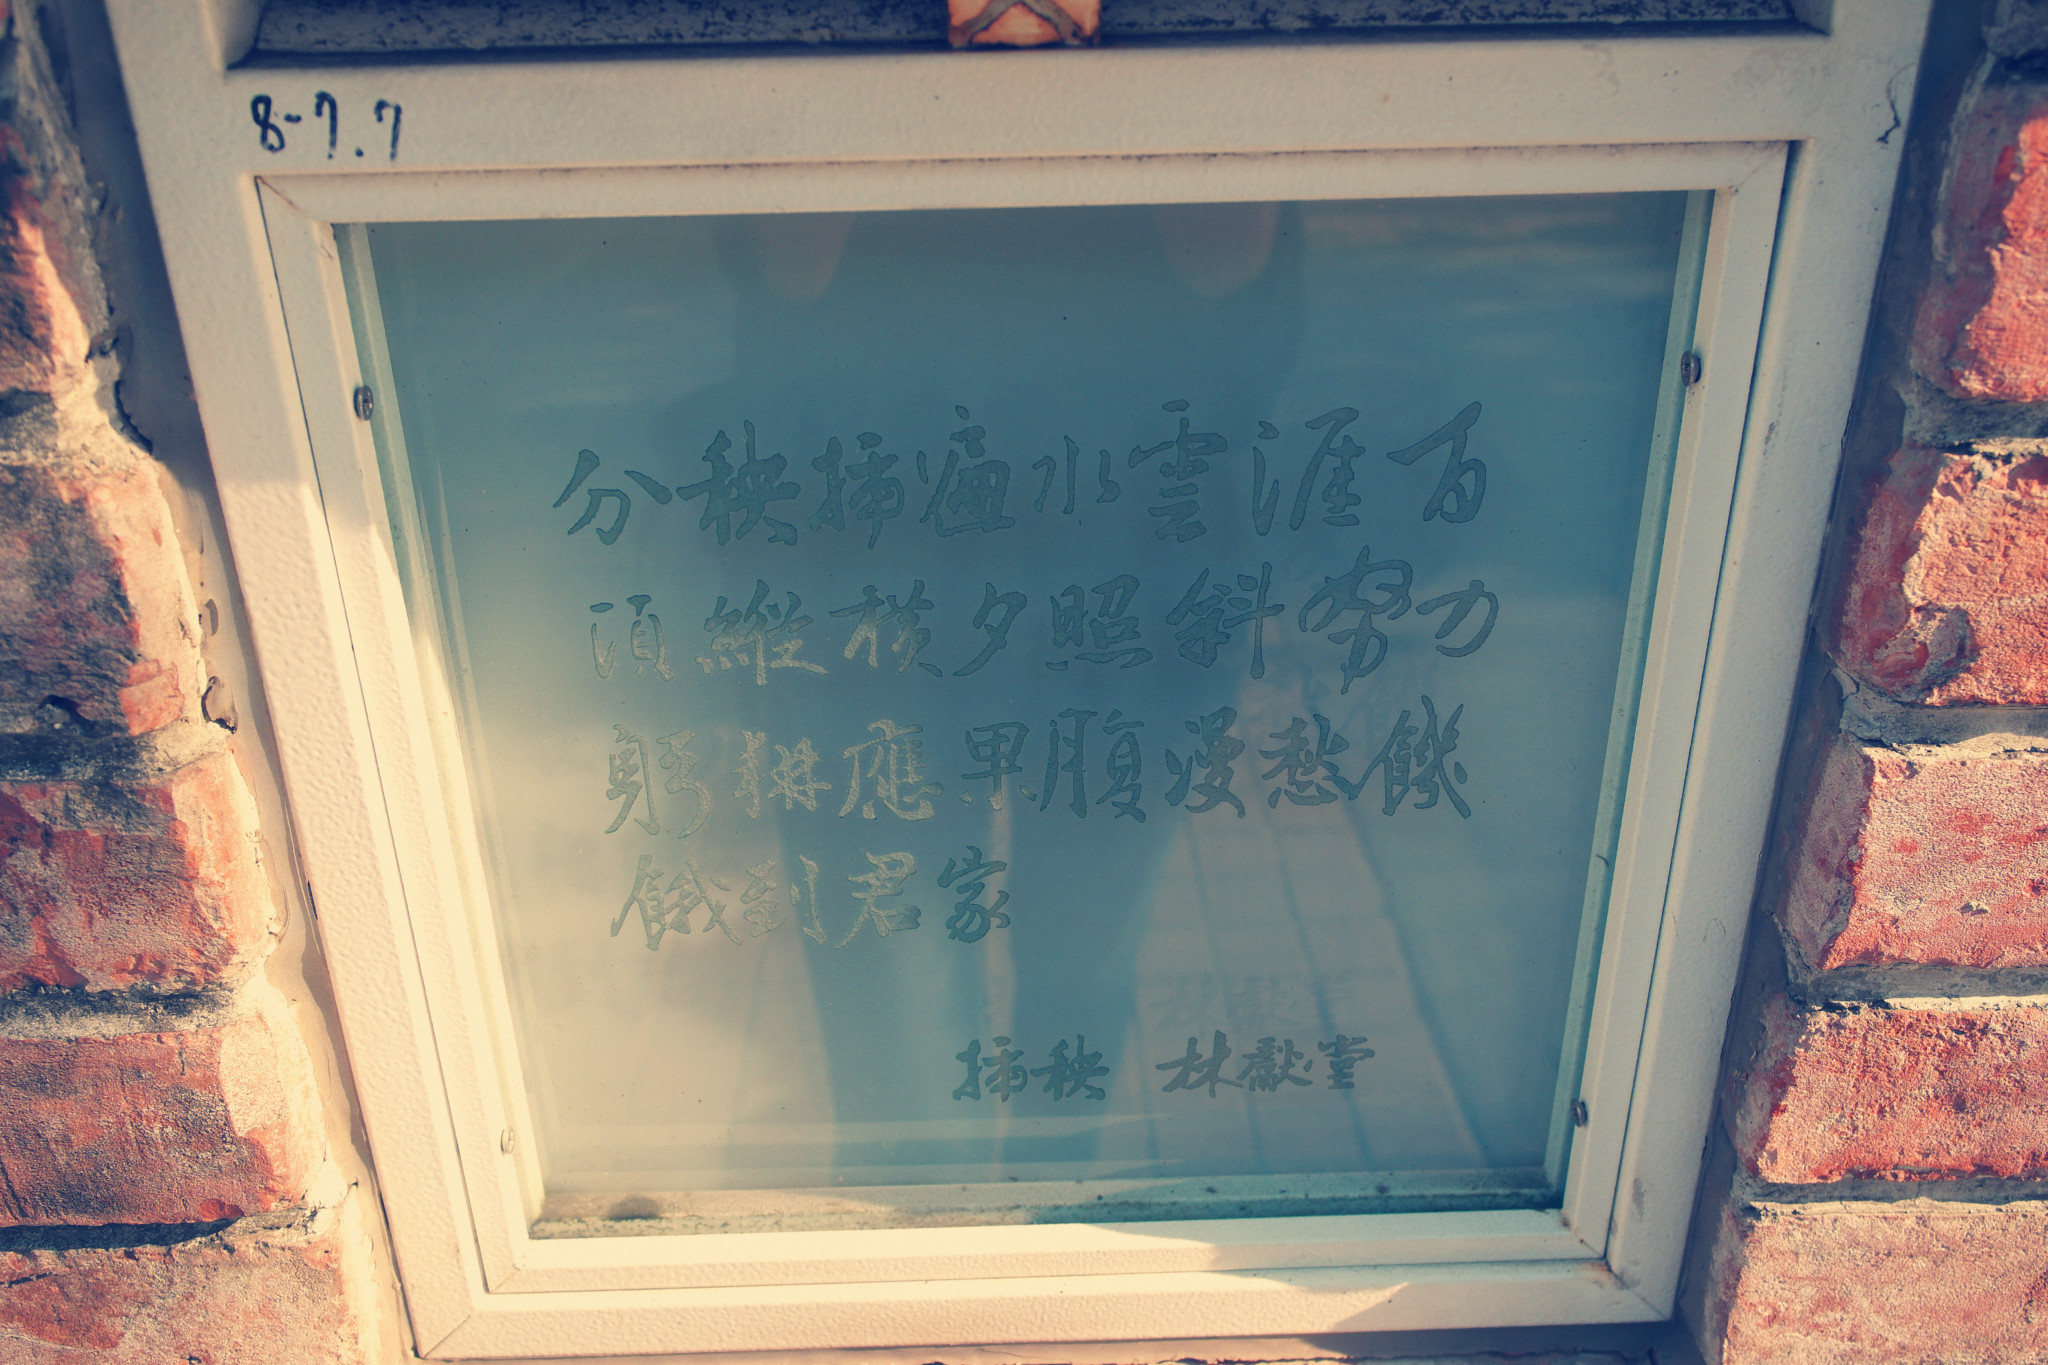 8-7.7
分秧插遍水雲涯百
頃縱橫夕照斜努力
躬耕應果腹漫愁饑
餓到君家
插秧 林獻堂